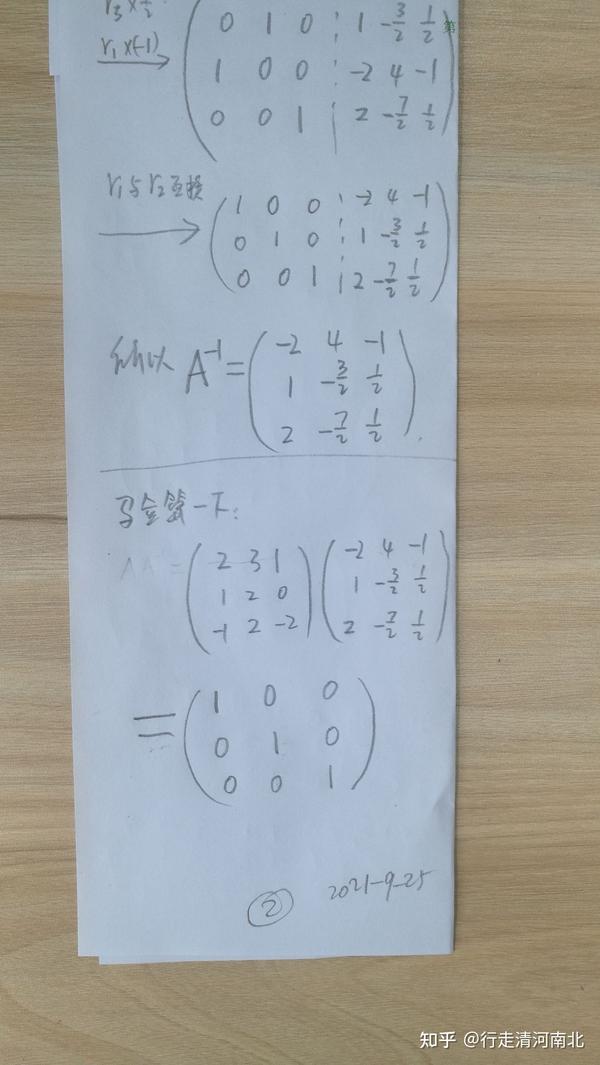 r₃×½
r₁×(-1)
0 1 0 ⋮ 1 -3/2 1/2
1 0 0 ⋮ -2 4 -1
0 0 1 | 2 -7/2 1/2
r₁与r₂互换
1 0 0 ⋮ -2 4 -1
0 1 0 ⋮ 1 -3/2 1/2
0 0 1 ⋮ 2 -7/2 1/2
所以 A⁻¹=
-2 4 -1
1 -3/2 1/2
2 -7/2 1/2
验算一下:
2 3 1 -2 4 -1
1 2 0 1 -3/2 1/2
-1 2 -2 2 -7/2 1/2
=
1 0 0
0 1 0
0 0 1
② 2021-9-25
知乎 @行走清河南北